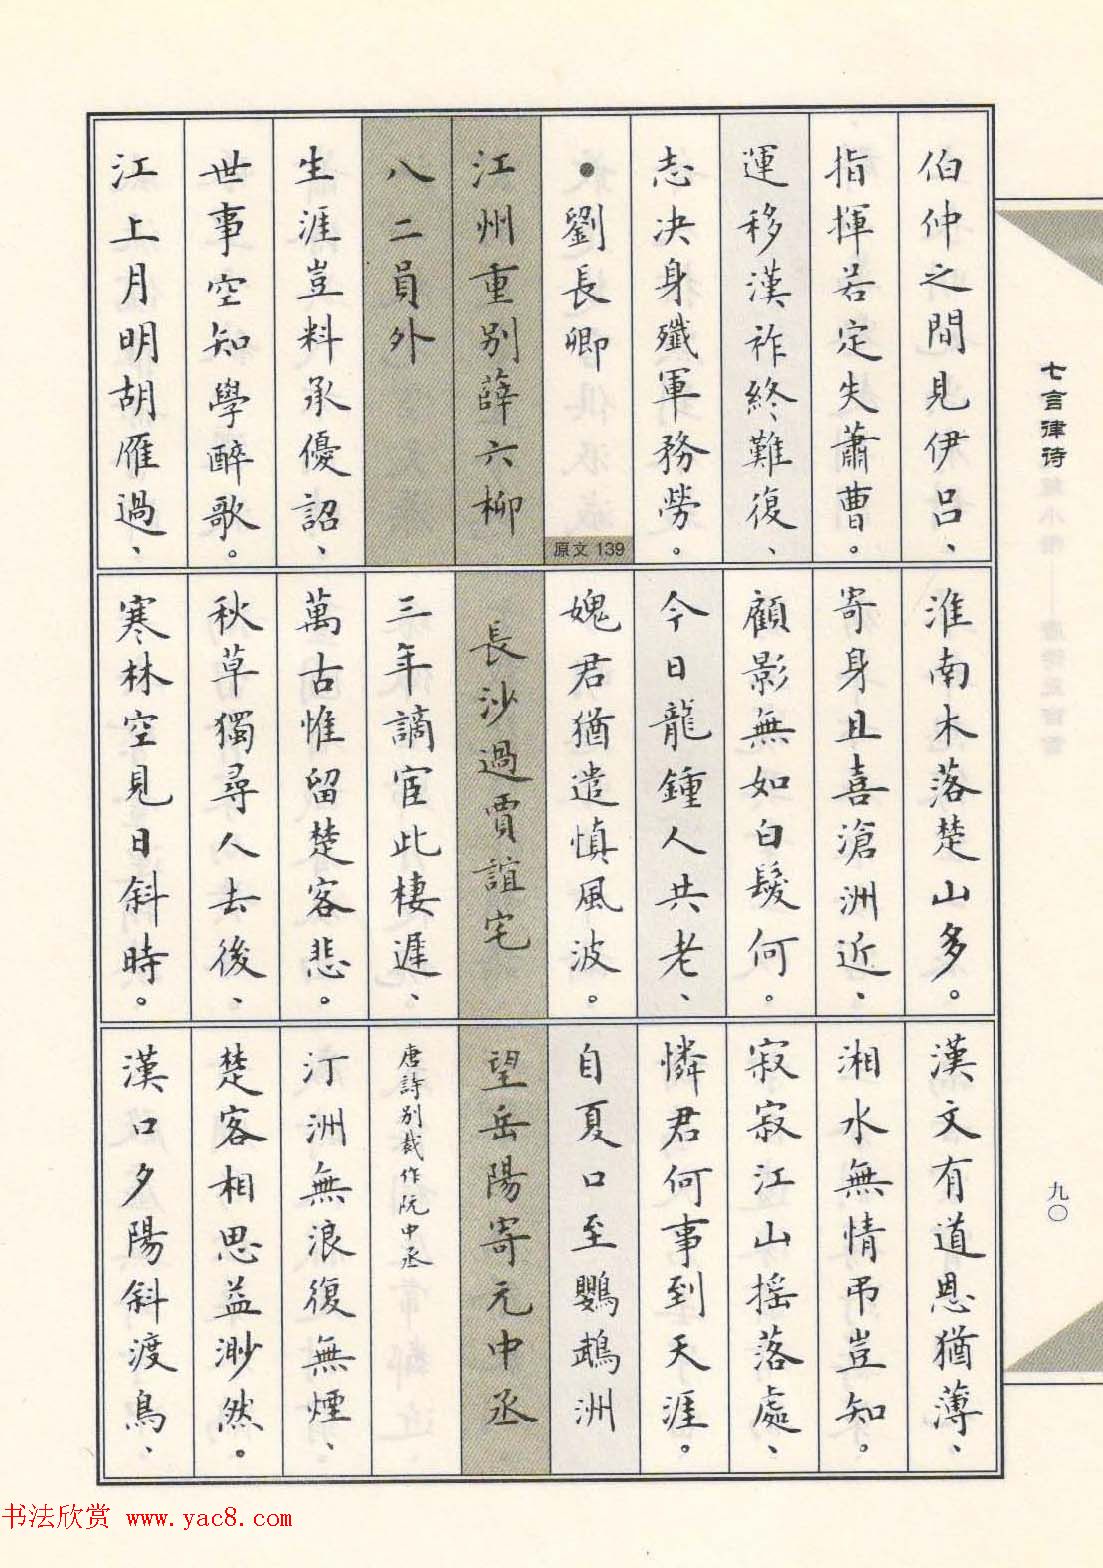 伯仲之間見伊呂、
指揮若定失蕭曹。
運移漢祚終難復、
志決身殲軍務勞。
•劉長卿
原文139
江州重別薛六柳
八二員外
生涯豈料承優詔、
世事空知學醉歌。
江上月明胡雁過、
淮南木落楚山多。
寄身且喜滄洲近、
顧影無如白髮何。
今日龍鍾人共老、
媿君猶遣慎風波。
長沙過賈誼宅
三年謫宦此棲遲、
萬古惟留楚客悲。
秋草獨尋人去後、
寒林空見日斜時。
漢文有道恩猶薄、
湘水無情弔豈知。
寂寂江山搖落處、
憐君何事到天涯。
自夏口至鸚鵡洲
望岳陽寄元中丞
唐詩別裁作阮中丞
汀洲無浪復無煙、
楚客相思益渺然。
漢口夕陽斜渡鳥、
七言律诗
九〇
书法欣赏 www.yac8.com